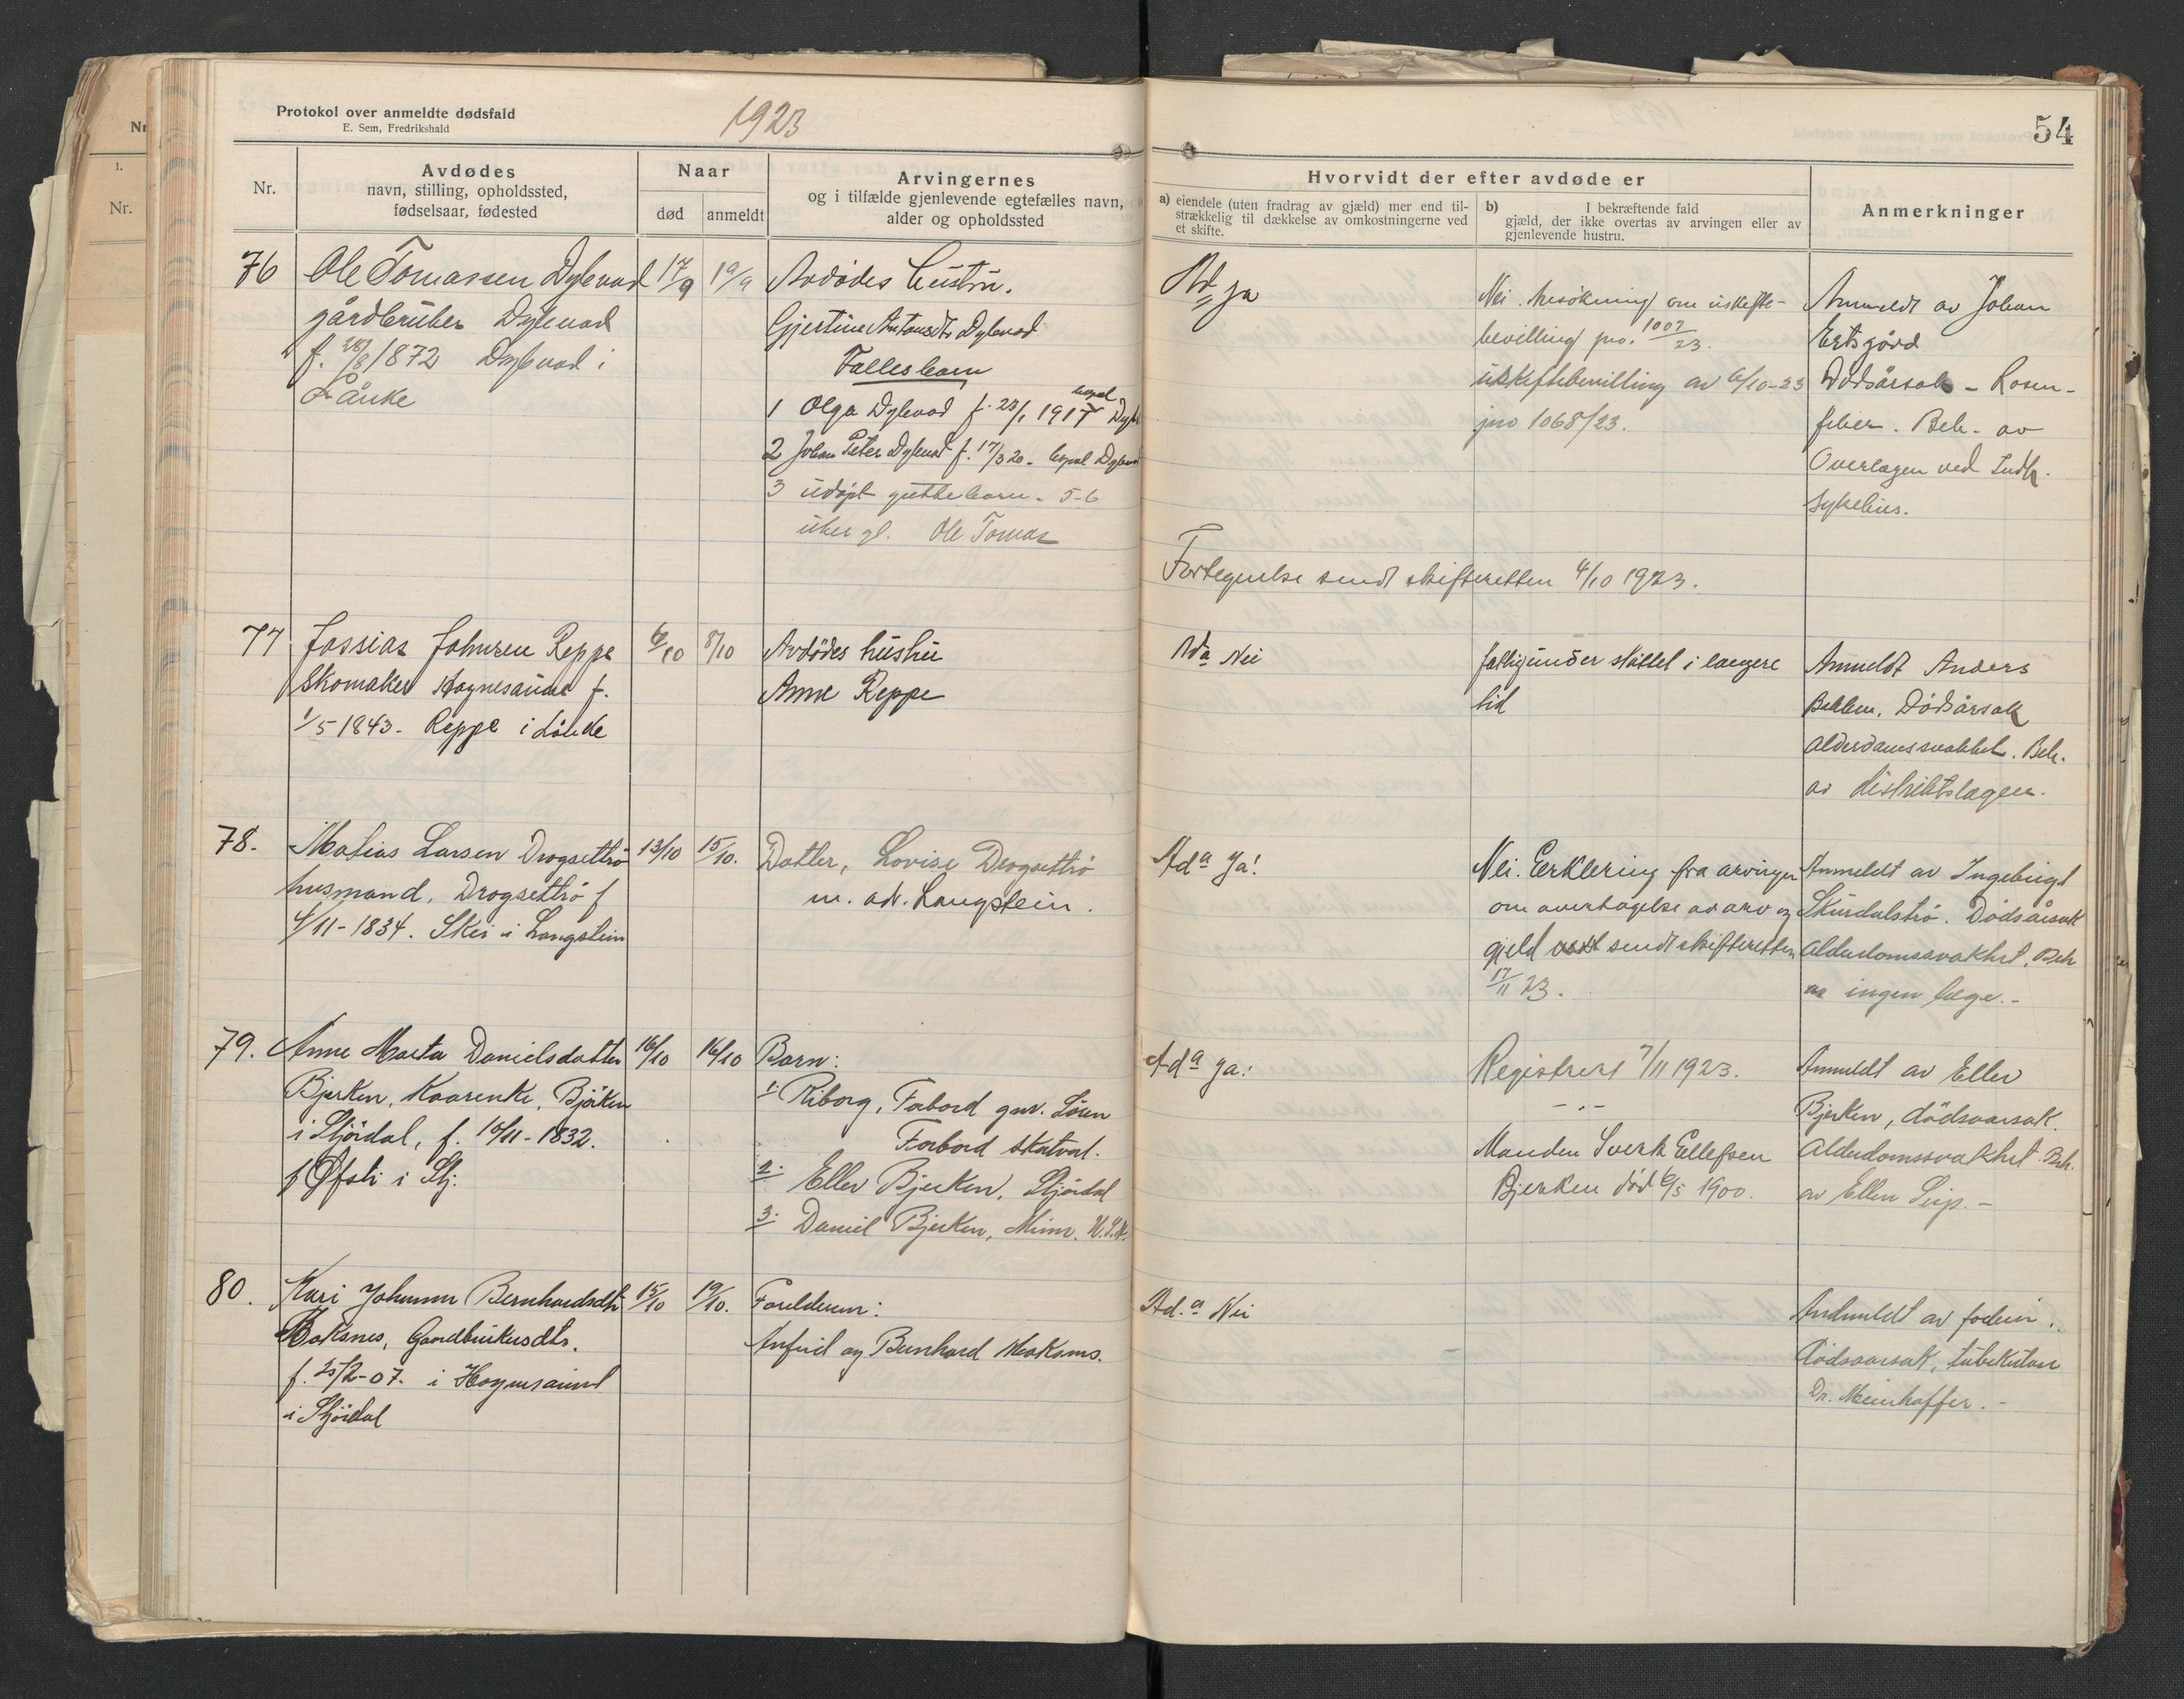 Protokol over anmeldte dødsfald
E. Sem, Fredrikshald
1923
Nr.
Avdødes
navn, stilling, opholdssted,
fødselsaar, fødested
Naar
død
anmeldt
Arvingernes
og i tilfælde gjenlevende egtefælles navn,
alder og opholdssted
76
Ole Tomassen Dylevad
gårdbruker Dylevad
f. 28/8 1872 Dylevad i
Lånke
17/9
19/9
Avdødes hustru.
Gjertine Antonsdtr Dylevad
Fællesbarn
1 Olga Dylevad f. 23/1 1917 bopel
2 Johan Peter Dylevad f. 17/3 20 - bopel
3 udøpt guttebarn - 5-6
uker gl. Ole Tomas
77
Jossias Johnsen Reppe
Skomaker f.
1/5 1843 - Reppe i Lånke
6/10
8/10
Avdödes hustru
Anne Reppe
78.
Matias Larsen Drogsettrö
husmand, Drogsettrö f
4/11-1834. Skei i Langstein
13/10
15/10.
Datter, Lovise Drogsettrö
m. adr. Langstein.
79.
Anne Marta Danielsdatter
Bjerken, Kaarenke, Björken
i Stjördal, f. 10/11-1832.
f Øfsti i Stj.
16/10
16/10
Barn:
1. Riborg, Forbord gm. Sören
Forbord skatval.
2. Ellev Bjerken, Stjördal
3. Daniel Bjerken, Minn. U.S.A.
80.
Kari Johanne Bernhardsdtr
Moksnes, Gardbrukersdtr.
f. 25/2-07. i
i Stjördal
15/10
19/10.
Foreldrene:
og Bernhard Moksnes.
54
Hvorvidt der efter avdøde er
a) eiendele (uten fradrag av gjæld) mer end til-
strækkelig til dækkelse av omkostningerne ved
et skifte.
b) I bekræftende fald
gjæld, der ikke overtas av arvingen eller av
gjenlevende hustru.
Anmerkninger
Ad a ja
Nei. Ansökning om uskifte-
bevilling jno. 1007/23.
uskiftebevilling av 6/10-23
jno 1068/23.
Anmeldt av Johan
Ertsgård
Dödsårsak - Rosen-
feber. Beh. av
Overlægen ved Indh.
sykehus.
Fortegnelse sendt skifteretten 4/10 1923.
Ad a Nei
fattigunderstöttet i længere
tid
Anmeldt Anders
Dödsårsak
Alderdomssvakhet. Beh.
av distriktslægen.
Ad a Ja!
Nei. Erklering fra arvingen
om overtagelse av arv og
gjeld sendt skifteretten
17/11 23.
Anmeldt av Ingebrigt
Skurdalströ. Dödsårsak
Alderdomssvakhet. Beh
av ingen læge. -
Ad a Ja!
Registrert 7/11 1923.
- . -
Manden Sverk Ellefsen
Bjerken död 6/5 1900.
Anmeldt av Ellev
Bjerken, dödsaarsak.
Alderdomssvakhet. Beh.
av Ellen Seip. -
Ad. a Nei
Anmeldt av faderen.
Dödsaarsak, tuberkulose
Dr. Meinhoffer. -
Nr.
1.
Nr.